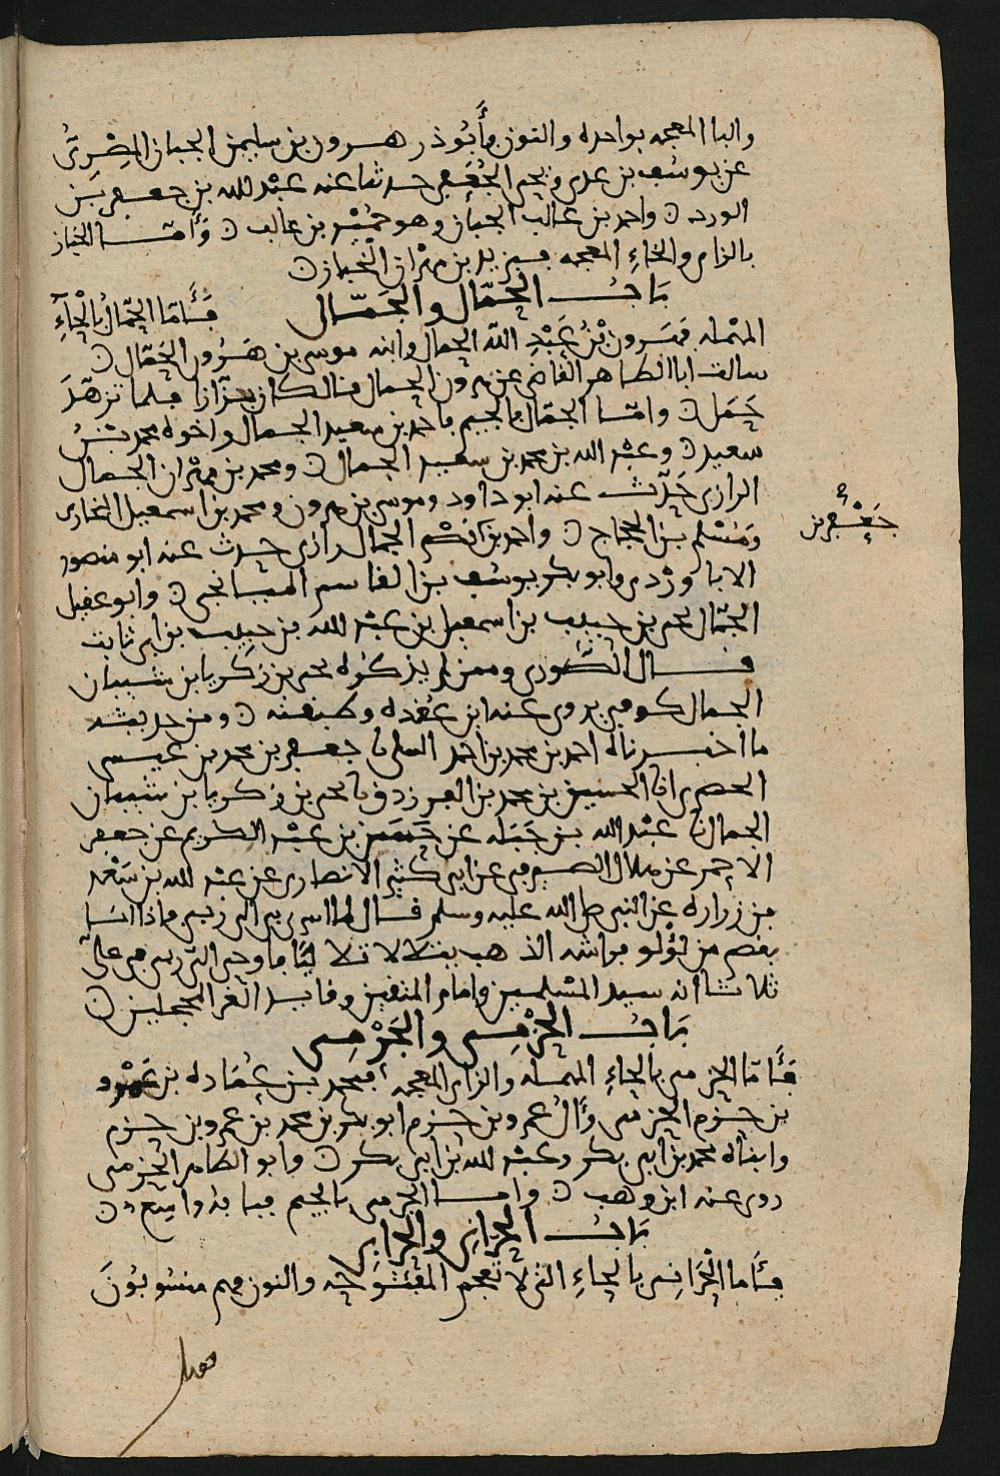 والبا المعجمه بواحده والنون فأبوذر هرون بن سليمن الجبان المصري
عن يوسف بن عدي ويحيى الجعفي حدثنا عنه عبد الله بن جعفر بن
الورد ن واحمد بن غالب الجبان وهو حمش بن غالب ن وأما الخباز
بالزاي والخاء المعجمه فيزيد بن مهران الخباز ن
باب الحمال والجمال
فأما الحمال بالحاء
المهمله فهرون بن عبد الله الحمال وابنه موسى بن هرون الحمال ن
سالت ابا الطاهر القاضي عن هرون الحمال فقال كان بزازا فلما تزهد
حمل ن واما الجمال بالجيم فاحمد بن سعيد الجمال واخوه محمد بن
سعيد ن وعبد الله بن محمد بن سعيد الجمال ن ومحمد بن مهران الجمال
الرازي حدث عنه ابو داود وموسى بن هرون ومحمد بن اسمعيل البخاري
ومسلم بن الحجاج ن واحمد بن الجمال رازي حدث عنه ابو منصور
جعفر بن
الاباوردي وابو بكر يوسف بن القاسم الميانجي ن وابو عقيل
الجمال يحيى بن حبيب بن اسمعيل بن عبد الله بن حبيب بن ابي ثابت
قال الصوري وممن لم يذكره يحيى بن زكريا بن شيبان
الجمال كوفي يروي عنه ابن عقده وطبقته ن ومن حديثه
ما اخبرناه احمد بن محمد بن احمد نا جعفر بن محمد بن عيسى
انا الحسين بن محمد بن الفرزدق نا يحيى بن زكريا بن شيبان
الجمال نا عبد الله بن جبله عن حميد بن عبد الكريم عن جعفر
الاحمر عن هلال الصيرفي عن ابي كثير الانصاري عن عبد الله بن سعد
بن زراره عن النبي صلى الله عليه وسلم قال لما اسري بي الى ربي فاذا انا
بقصر من لؤلؤ فراشه الذهب يتلالا فاوحى الي ربي في علي
ثلاثا انه سيد المسلمين وامام المتقين وقايد الغر المحجلين ن
باب الحزمي والجرمي
فأما الحزمي بالحاء المهمله والزاي المعجمه فمحمد بن عماره بن عمرو
بن حزم الحزمي وآل عمرو بن حزم ابو بكر بن محمد بن عمرو بن حزم
وابناه محمد بن ابي بكر وعبد الله بن ابي بكر ن وابو الطاهر الحزمي
روى عنه ابن وهب ن واما الجرمي بالجيم فبابه واسع ن
باب الحراني والجرابي
فأما الحراني بالحاء التي لا تعجم المفتوحه والنون فهم منسوبون